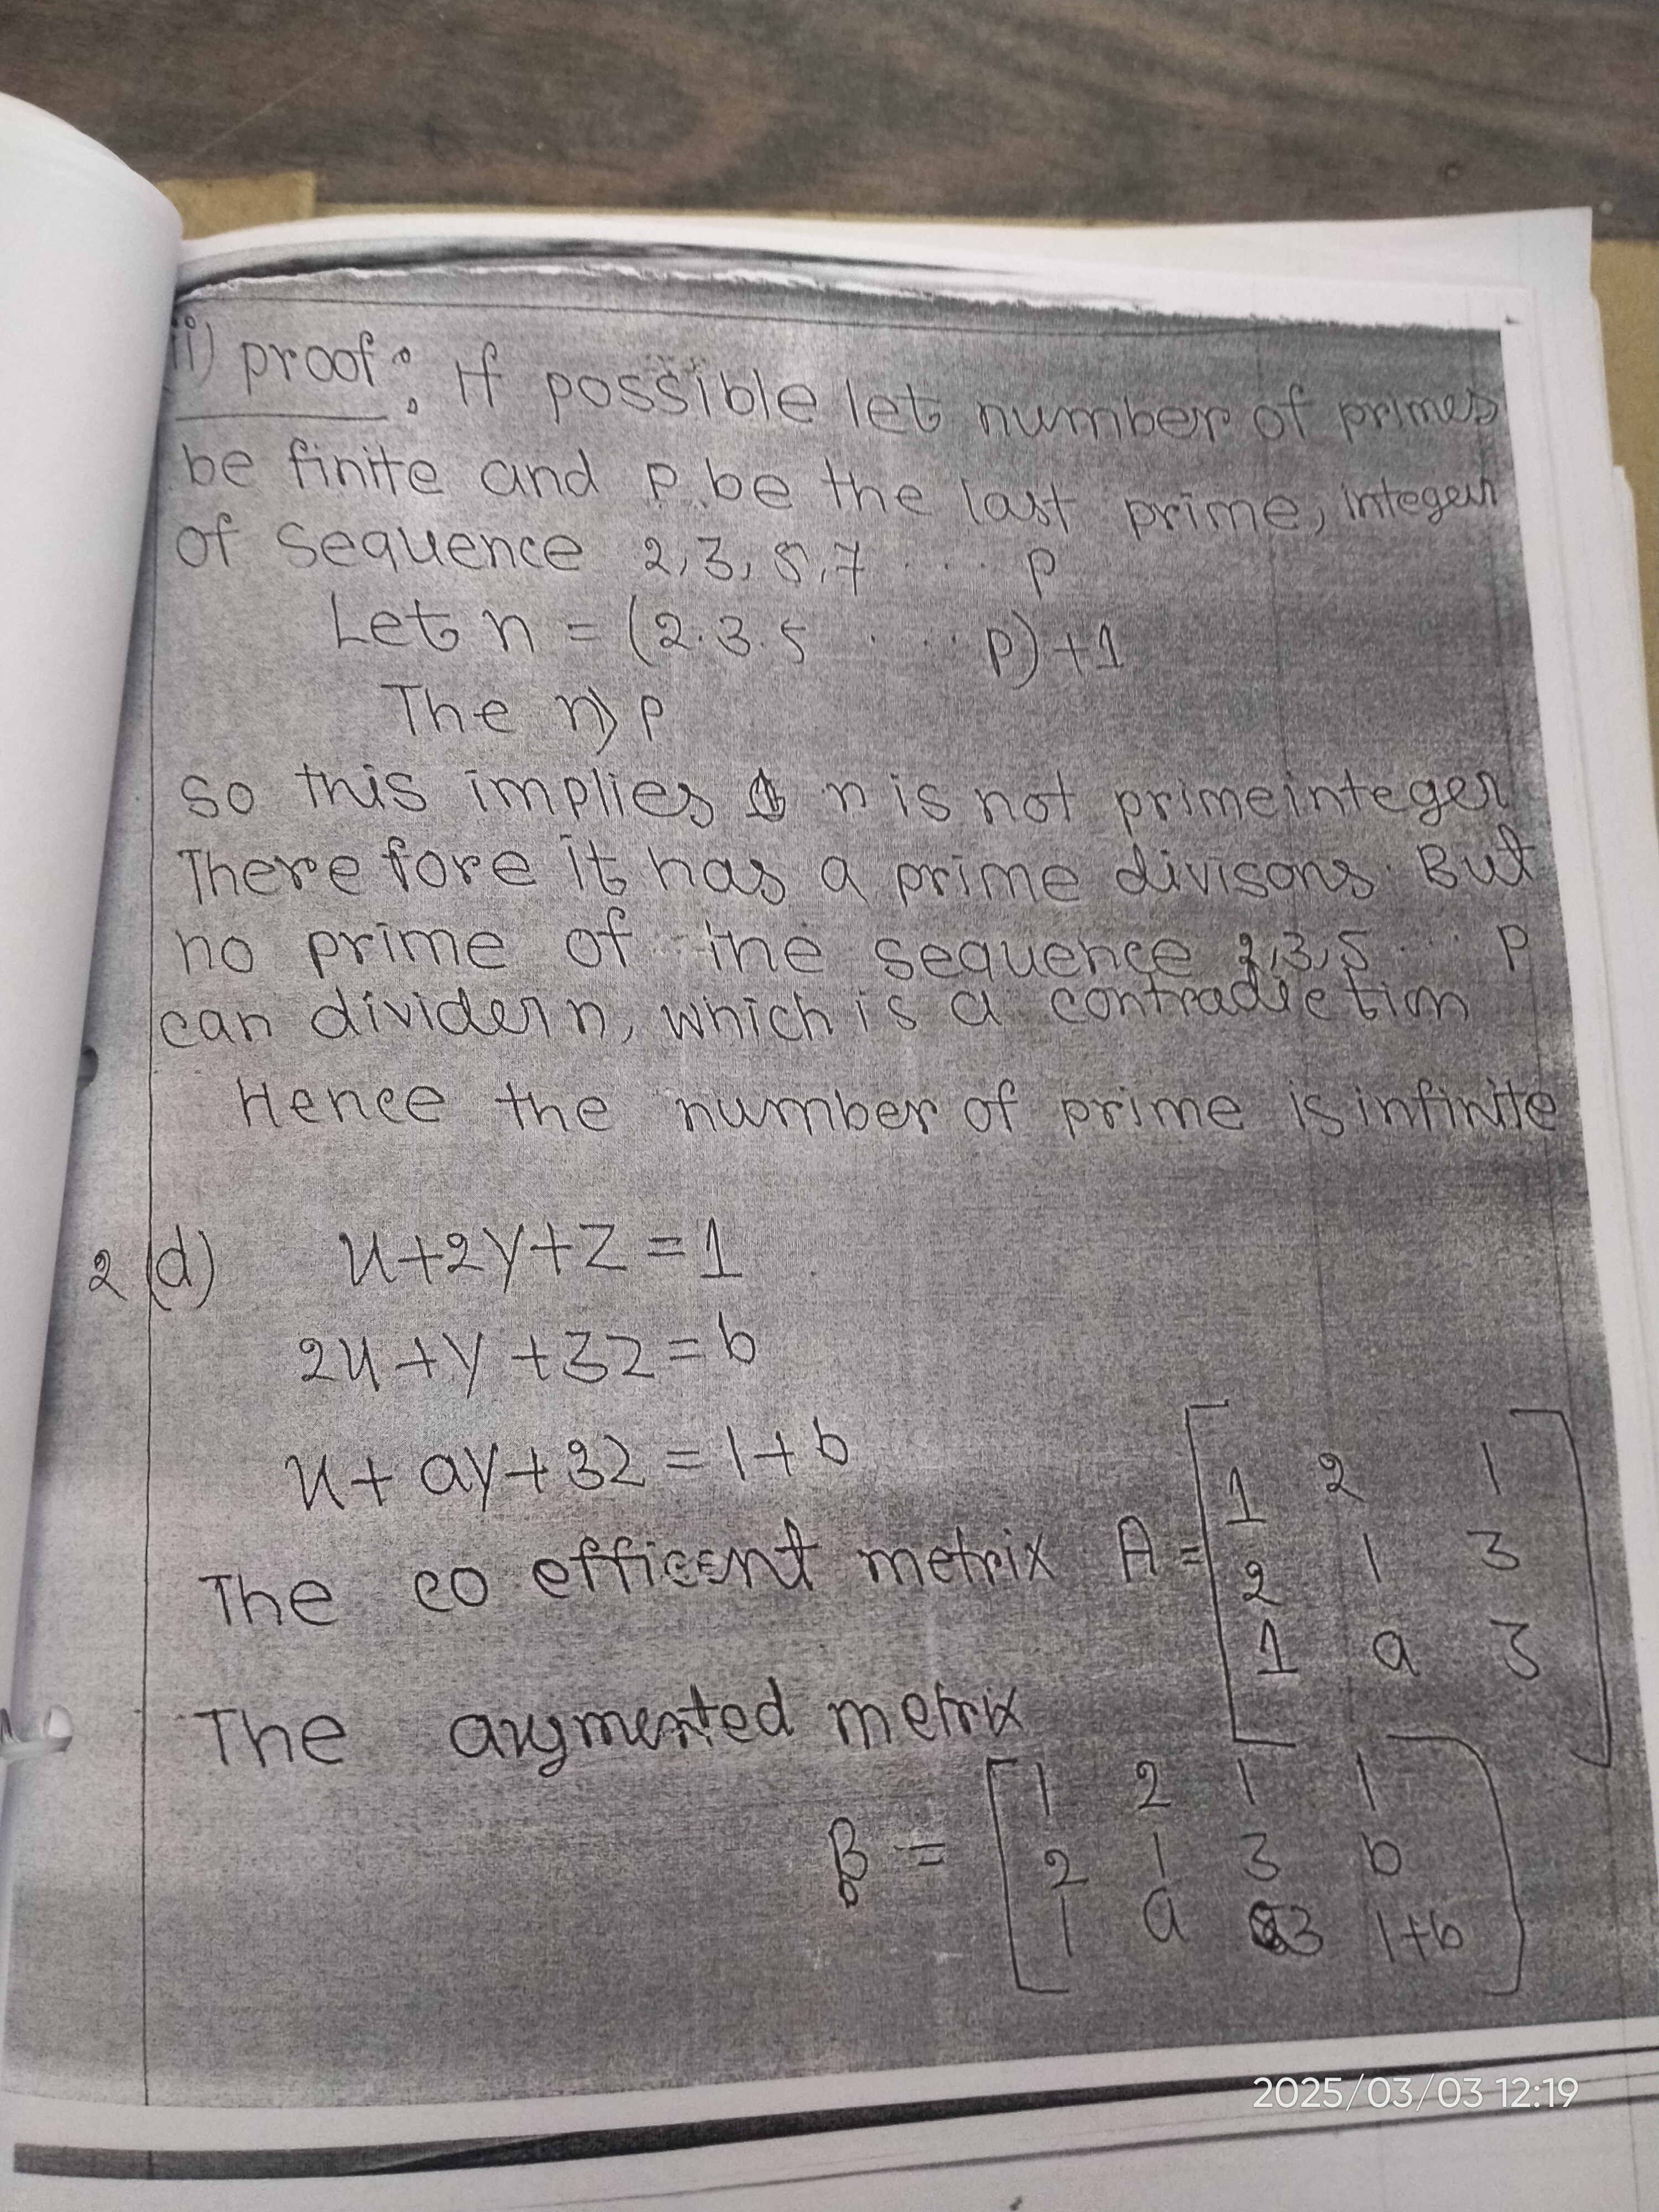 ii) proof: If possible let number of primes
be finite and P be the last prime, integer
of sequence 2,3,5,7 .... P
Let n = (2.3.5 .... P)+1
The n>P
so this implies n is not primeinteger
There fore it has a prime divisons. But
no prime of the sequence 2,3,5... P
can divider n, which is a contradiction
Hence the number of prime is infinite
2(d) x+2y+z=1
2x+y+3z=b
x+ay+3z=1+b
The co efficent metrix A = [1 2 1
2 1 3
1 a 3]
The augmented metrix
B = [1 2 1 1
2 1 3 b
1 a 3 1+b]
2025/03/03 12:19